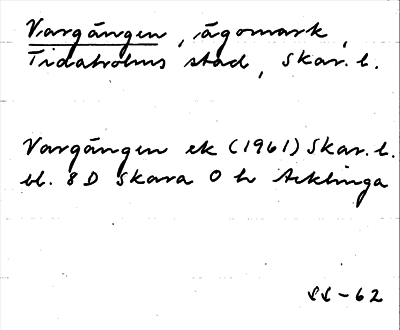 Vargången, ägomark,
Tidaholms stad, Skar. l.
Vargången ek (1961) Skar. l.
bl. 8 D Skara O h Acklinga
SS-62